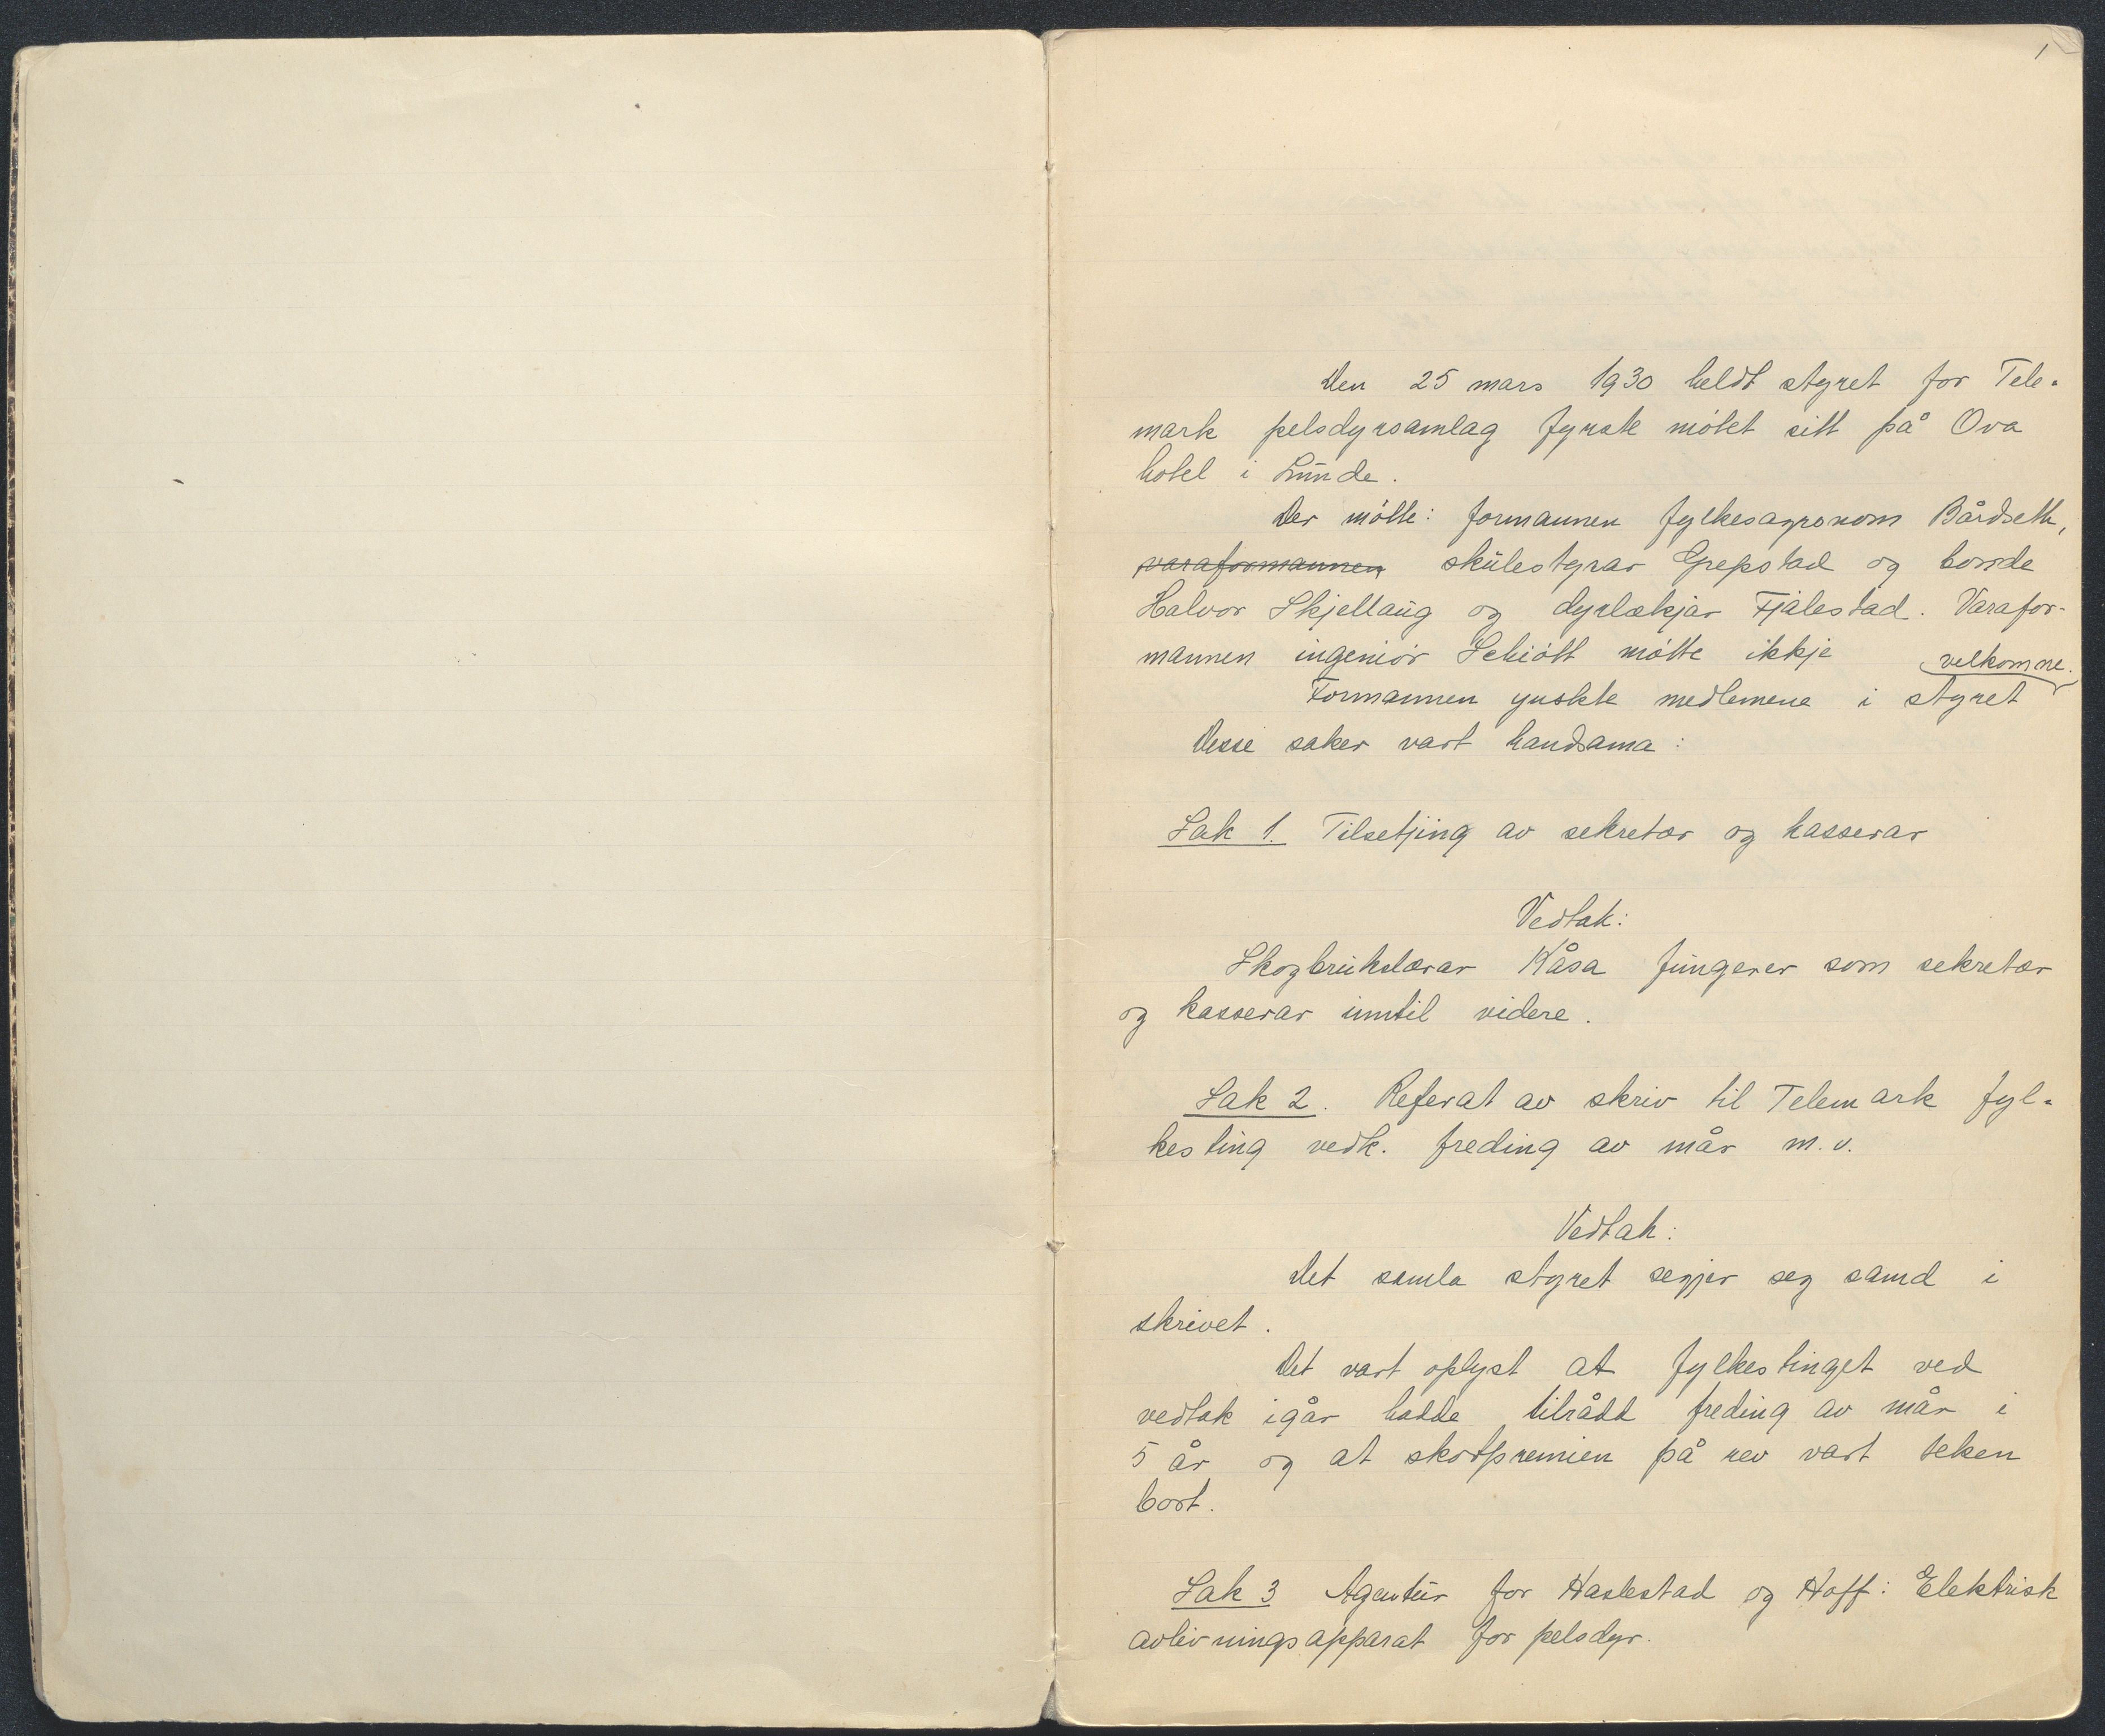 1
Den 25 mars 1930 heldt styret for Tele-
mark pelsdyrsamlag fyrste møtet sitt på Ova
hotel i Lunde.
Der møtte: formannen fylkesagronom Bårdseth,
varaformannen skulestyrar Grepstad og bonde
Halvor Skjellaug og dyrlækjar Fjålestad. Varafor-
mannen ingeniør Schiøtt møtte ikkje
velkomne.
Formannen ynskte medlemene i styret
Desse saker vart handsama:
Sak 1. Tilsetjing av sekretær og kasserar
Vedtak:
Skogbrukslærar Kåsa fungerer som sekretær
og kasserar inntil videre.
Sak 2. Referat av skriv til Telemark fyl-
kesting vedk. freding av mår m.v.
Vedtak:
Det samla styret segjer seg samd i
skrivet.
Det vart oplyst at fylkestinget ved
vedtak igår hadde tilrådd freding av mår i
5 år og at skotpremien på rev vart teken
bort.
Sak 3 Agentur for Haslestad og Hoff: Elektrisk
avlivningsapparat for pelsdyr.